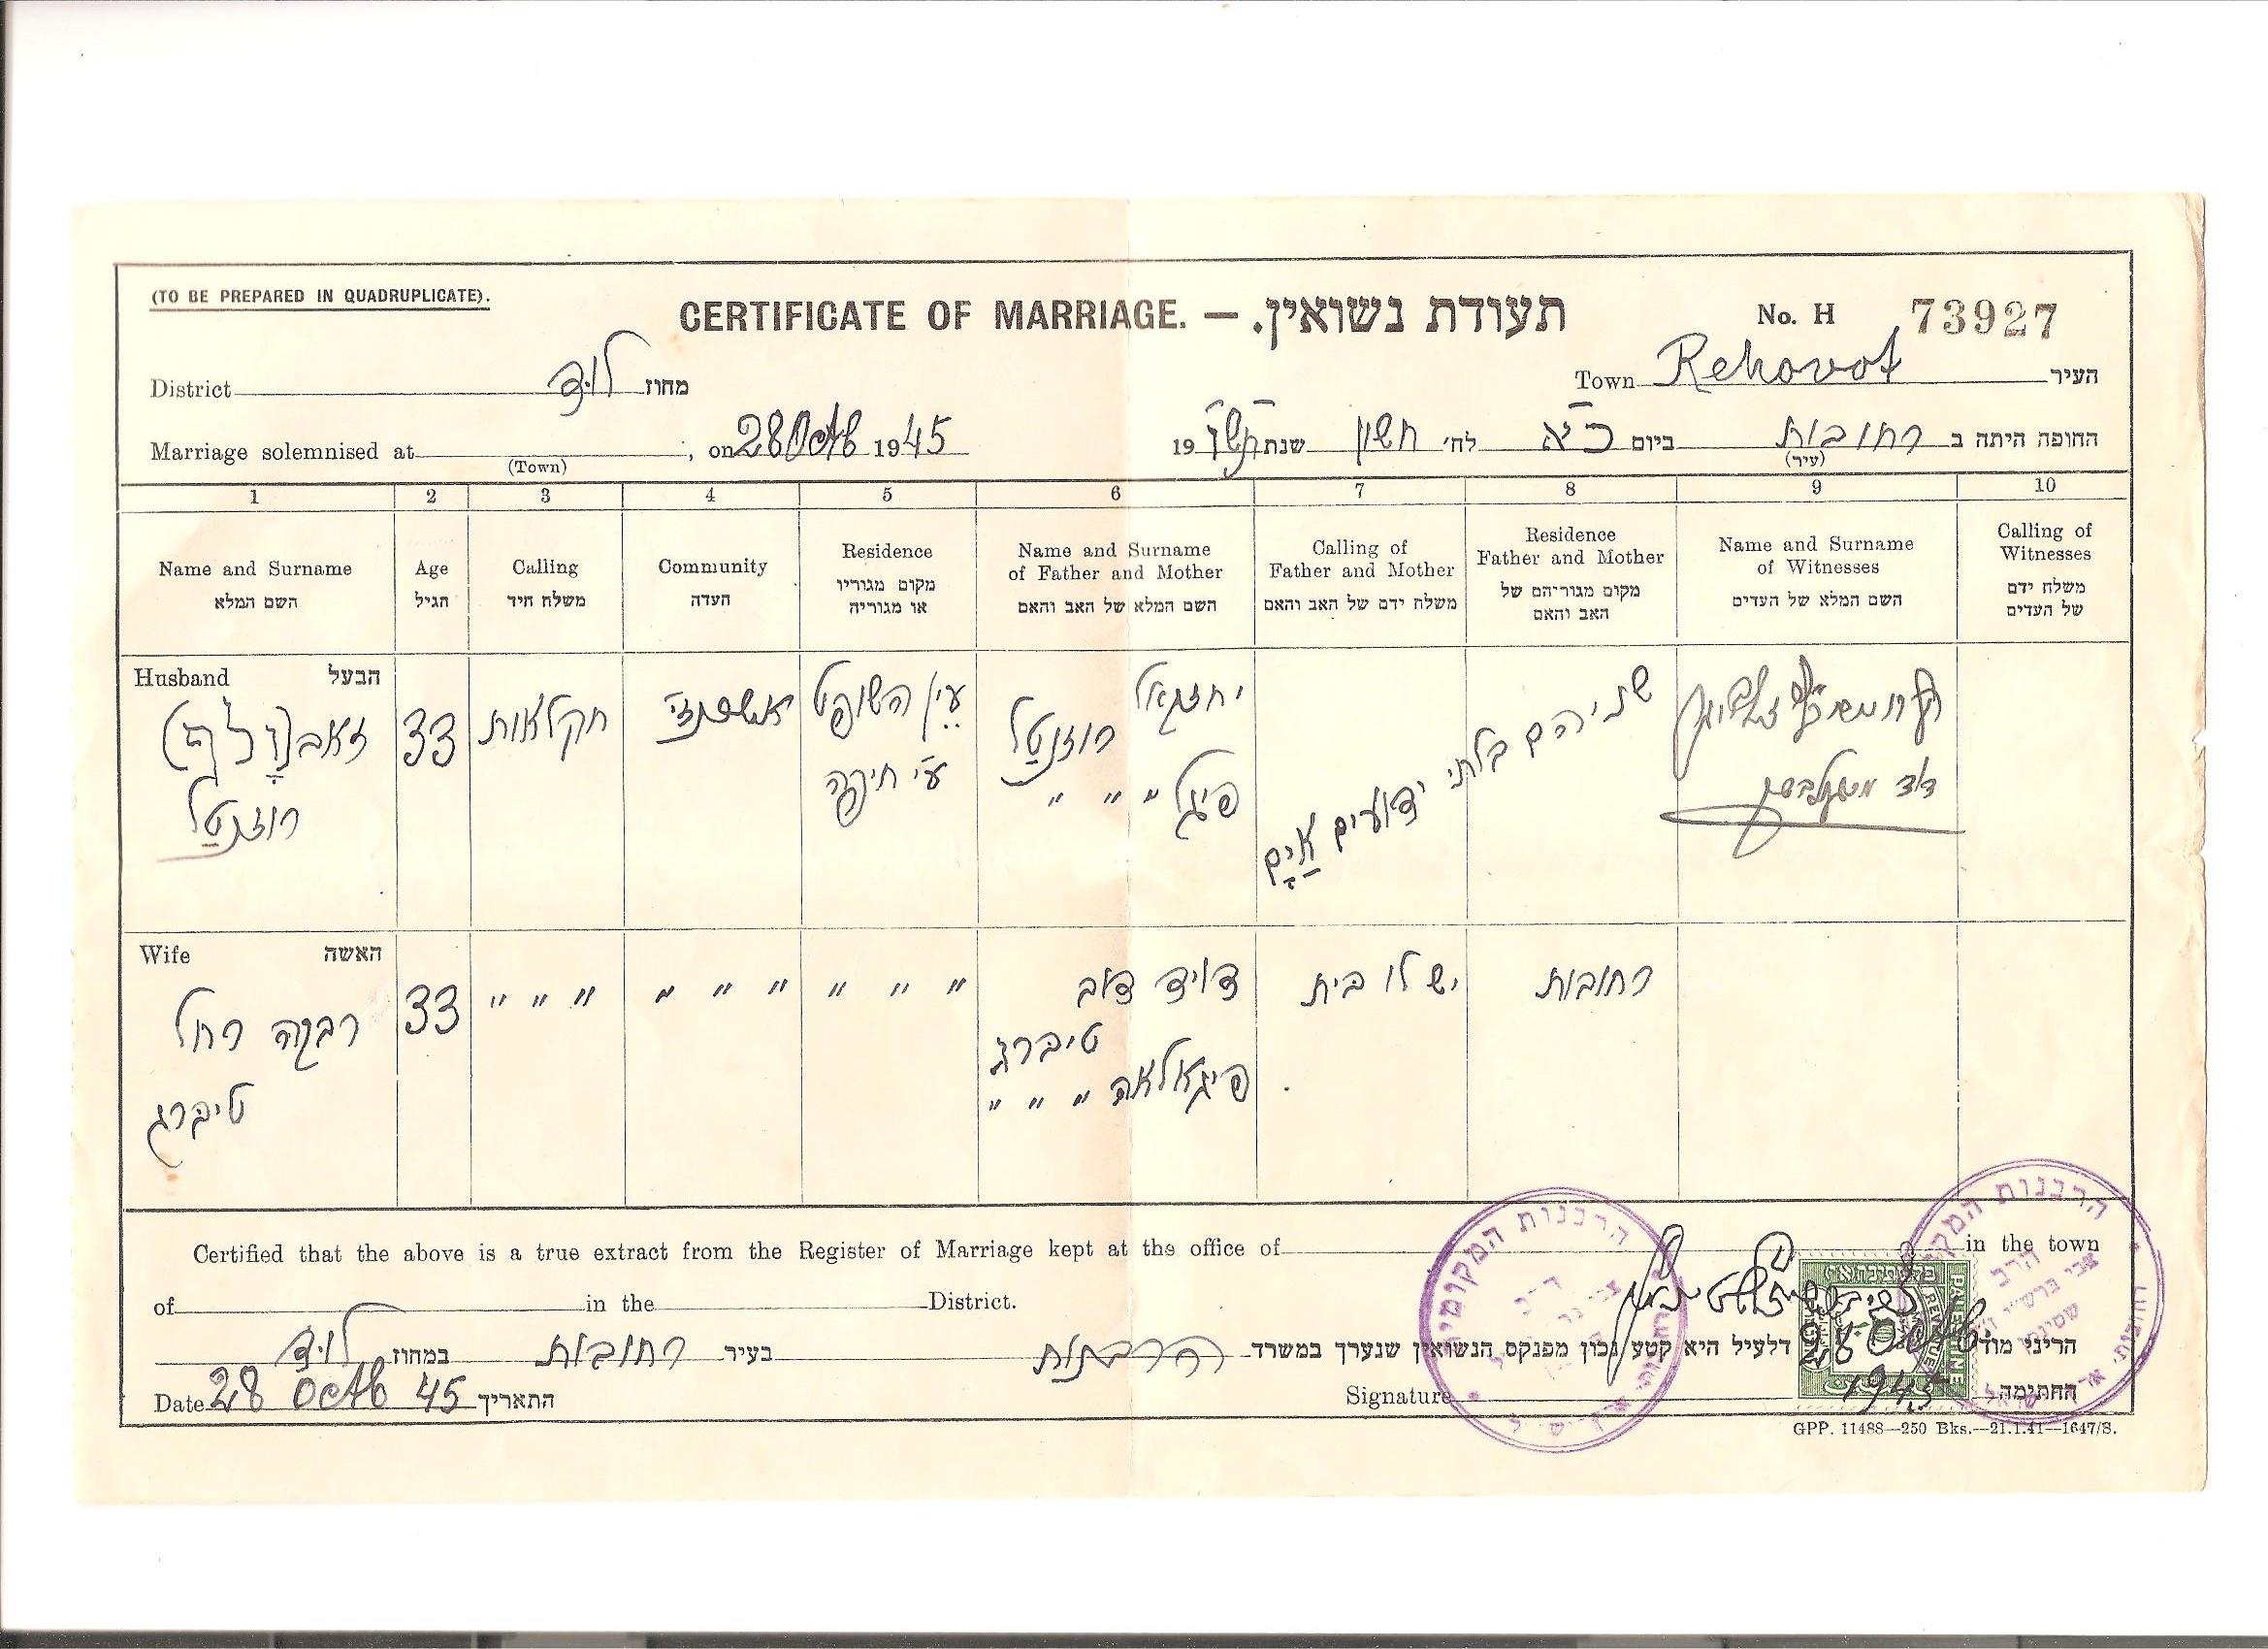 (TO BE PREPARED IN QUADRUPLICATE).
CERTIFICATE OF MARRIAGE. — תעודת נשואין.
No. H 73927
District לוד מחוז
Town Rehovot העיר
Marriage solemnised at ; on 28 Octb 1945
(Town)
החופה היתה ב רחובות ביום כ״א לח׳ חשון שנת תש״ו 19
(עיר)
1 2 3 4 5 6 7 8 9 10
Name and Surname
השם המלא
Age
הגיל
Calling
משלח היד
Community
העדה
Residence
מקום מגוריו
או מגוריה
Name and Surname
of Father and Mother
השם המלא של האב והאם
Calling of
Father and Mother
משלח ידם של האב והאם
Residence
Father and Mother
מקום מגוריהם של
האב והאם
Name and Surname
of Witnesses
השם המלא של העדים
Calling of
Witnesses
משלח ידם
של העדים
Husband הבעל
זאב (וֶלף)
רוזנטַל
33
חקלאות
אשכנזי
עין השופט
ע״י חיפה
יחזקאל
רוזנטַל
פיגל " " "
שניהם בלתי ידועים אַיָם
דוד
Wife האשה
רבקה רחל
טיברג
33
" " "
" " "
" " "
דויד דוב
טיברג
פיגאלאה " " "
יש לו בית
רחובות
Certified that the above is a true extract from the Register of Marriage kept at the office of in the town
of in the District.
הריני מודיע דלעיל היא קטע נכון מפנקס הנשואין שנערך במשרד הרבנות בעיר רחובות במחוז לוד
Date 28 Octb 45 התאריך
Signature החתימה
הרבנות המקומית
הרבנות המקומית
הרב
PALESTINE
REVENUE
28 Octb
1945
GPP. 11488—250 Bks.—21.1.41—1647/S.